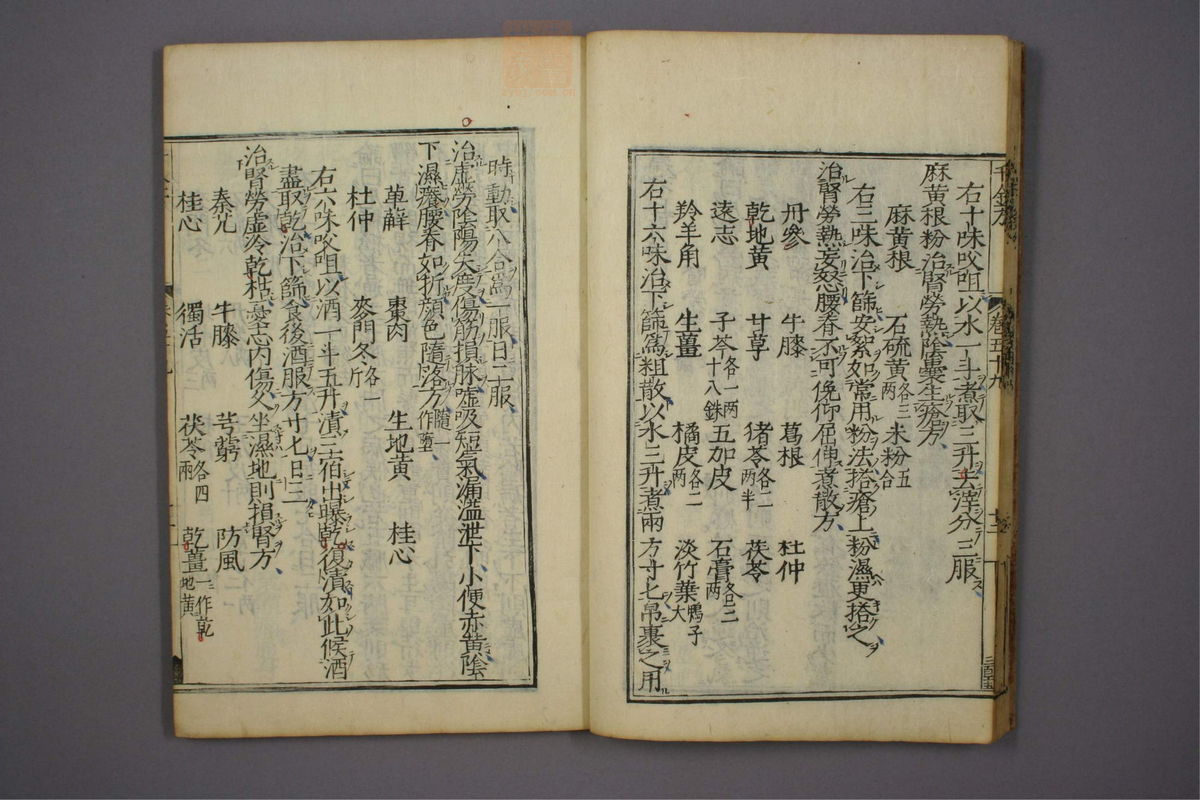 右十味㕮咀以水一斗煮取三升去滓分三服
麻黄根粉治腎勞熱陰囊生瘡方
麻黄根 石硫黄各三両 米粉五合
右三味治下篩安絮如常用粉法搭瘡上粉濕更搭之
治腎勞熱妄怒腰脊不可俛仰屈伸煮散方
丹參 牛膝 葛根 杜仲
乾地黄 甘草 猪苓各二両半 茯苓
遠志 子芩各一両十八銖 五加皮 石膏各三両
羚羊角 生薑 橘皮各二両 淡竹葉鴨子大
右十六味治下篩爲粗散以水三升煮兩方寸七帛裹之用
時動取八合爲一服日二服
治虚勞陰陽失度傷筋損脉嘘吸短氣漏溢泄下小便赤黄陰
下濕癢腰脊如折顔色隨落方隨一作墮
萆薢 棗肉 生地黄 桂心
杜仲 麥門冬各一斤
右六味㕮咀以酒一斗五升漬三宿出曝乾復漬如此候酒
盡取乾治下篩食後酒服方寸七日三
治腎勞虚冷乾枯憂恚内傷久坐濕地則損腎方
秦艽 牛膝 芎藭 防風
桂心 獨活 茯苓各四兩 乾薑一作乾地黄
千金方
卷五十九